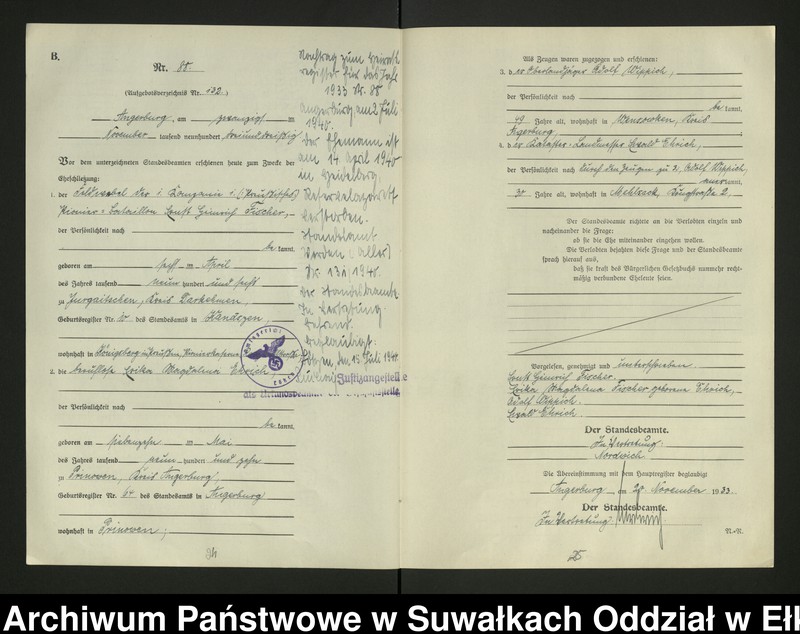 B.
Nr. 88.
(Aufgebotsverzeichnis Nr. 132.)
Angerburg, am zwanzigsten
November tausend neunhundert dreiunddreißig
Vor dem unterzeichneten Standesbeamten erschienen heute zum Zwecke der
Eheschließung:
1. der Feldwebel der 1. Kompanie 1. (Preußisches)
Pionier-Bataillon Ernst Heinrich Fischer,
der Persönlichkeit nach
be kannt,
geboren am April
des Jahres tausend neun hundert und sechs
zu Jurgaitschen, Kreis Darkehmen,
Geburtsregister Nr. des Standesamts in
wohnhaft in Königsberg in Preußen,
2. die berufslose Erika Magdalena Ehrich,
der Persönlichkeit nach
be kannt,
geboren am siebzehnten Mai
des Jahres tausend neun hundert und zehn
zu Prinowen, Kreis Angerburg,
Geburtsregister Nr. 34 des Standesamts in Angerburg
wohnhaft in Prinowen,
Nachtrag zum Heirats-
register für das Jahr
1933 Nr. 88
Angerburg, am 2. Juli
1940.
Der Ehemann ist
am 14. April 1940
in Heidelberg,
Reservelazarett
verstorben.
Standesamt
Verden (Aller)
Nr. 1940.
Der Standesbeamte
In Vertretung:
Beglaubigt:
den 13. Juli 1940
Justizangestellte
als Urkundsbeamter der Geschäftsstelle
Als Zeugen waren zugezogen und erschienen:
3. der Oberlandjäger Adolf Wippich,
der Persönlichkeit nach
be kannt,
49 Jahre alt, wohnhaft in Benkowken, Kreis
Angerburg
4. der Kataster-Landmesser Ewald Ehrich,
der Persönlichkeit nach durch den Zeugen zu 3, Adolf Wippich,
anerkannt,
30 Jahre alt, wohnhaft in Mehlsack, 2.
Der Standesbeamte richtete an die Verlobten einzeln und
nacheinander die Frage:
ob sie die Ehe miteinander eingehen wollen.
Die Verlobten bejahten diese Frage und der Standesbeamte
sprach hierauf aus,
daß sie kraft des Bürgerlichen Gesetzbuchs nunmehr recht-
mäßig verbundene Eheleute seien.
Vorgelesen, genehmigt und unterschrieben.
Ernst Heinrich Fischer.
Erika Magdalena Fischer geborene Ehrich.
Adolf Wippich.
Ewald Ehrich
Der Standesbeamte.
In Vertretung:
Die Übereinstimmung mit dem Hauptregister beglaubigt
Angerburg, am 20. November 1933.
Der Standesbeamte.
In Vertretung:
N.-N.
Archiwum Państwowe w Suwałkach Oddział w Ełk